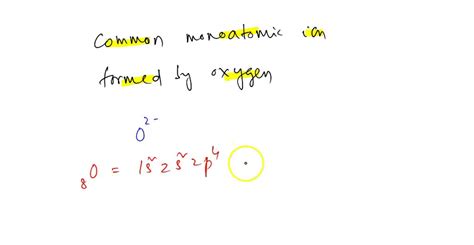 common monoatomic ion
formed by oxygen
O²⁻
₈O = 1s² 2s² 2p⁴